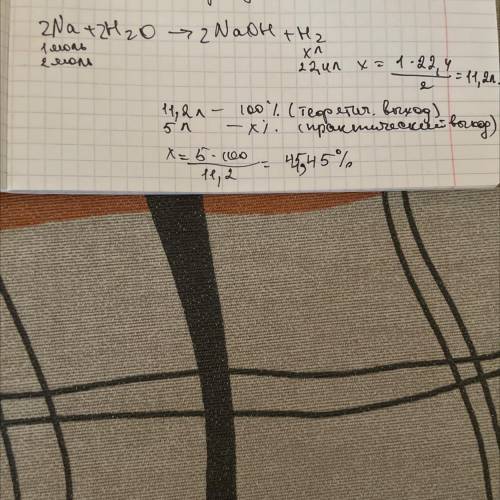 2Na + 2H2O → 2NaOH + H2
1 моль x л
2 моль 22,4 л x = 1 · 22,4 / 2 = 11,2 л.
11,2 л – 100% (теоретич. выход)
5 л – x%. (практический выход)
x = 5 · 100 / 11,2 = 45,45%